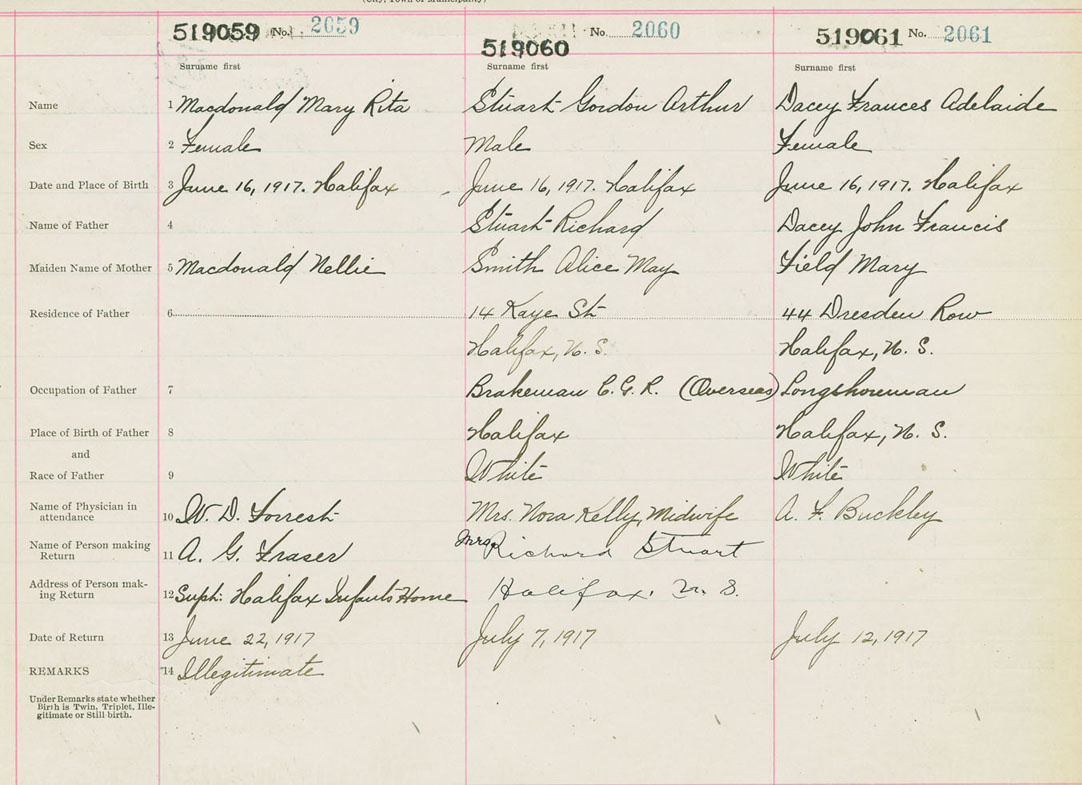 519059 No. 2059
519060 No. 2060
519061 No. 2061
Surname first
Surname first
Surname first
Name 1 Macdonald Mary Rita Stuart Gordon Arthur Dacey Frances Adelaide
Sex 2 Female Male Female
Date and Place of Birth 3 June 16, 1917. Halifax June 16, 1917. Halifax June 16, 1917. Halifax
Name of Father 4 Stuart Richard Dacey John Francis
Maiden Name of Mother 5 Macdonald Nellie Smith Alice May Field Mary
Residence of Father 6 14 Kaye St 44 Dresden Row
Halifax, N. S. Halifax, N. S.
Occupation of Father 7 Brakeman C.G.R. (Overseas) Longshoreman
Place of Birth of Father 8 Halifax Halifax, N. S.
and
Race of Father 9 White White
Name of Physician in
attendance 10 W. D. Forrest Mrs. Nora Kelly, Midwife A. F. Buckley
Name of Person making
Return 11 A. G. Fraser Mrs. Richard Stuart
Address of Person mak-
ing Return 12 Supt. Halifax Infants Home Halifax. N. S.
Date of Return 13 June 22, 1917 July 7, 1917 July 12, 1917
REMARKS 14 Illegitimate
Under Remarks state whether
Birth is Twin, Triplet, Ille-
gitimate or Still birth.